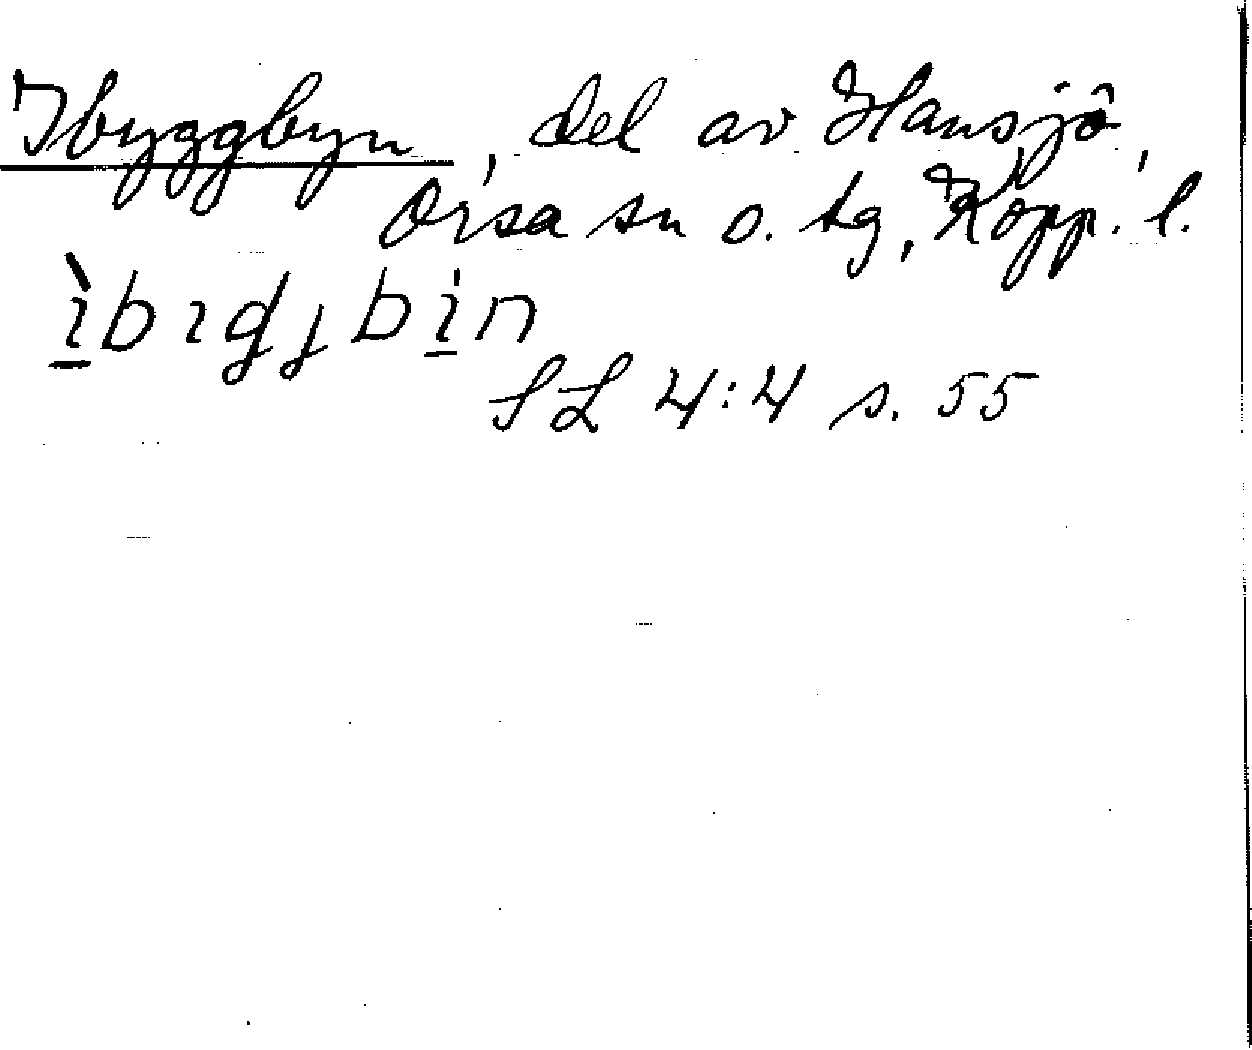 Ibyggbyn, del av Hansjö,
Orsa sn o. tg, Kopp. l.
ìbıgȷbin
SL 4:4 s. 55